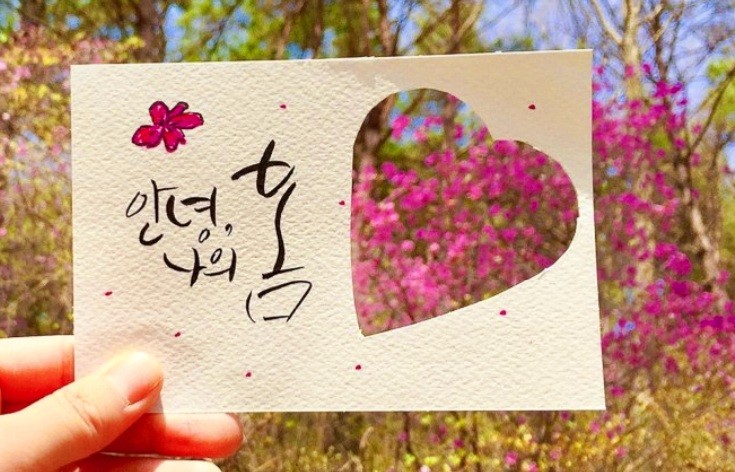 안녕,
나의 봄